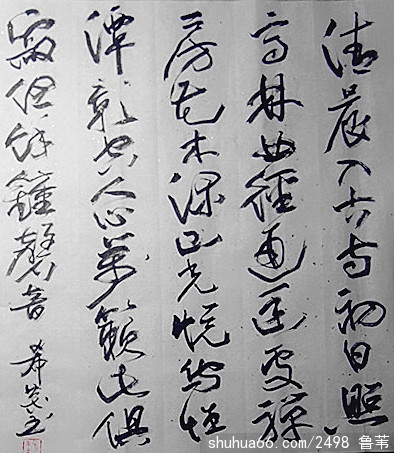 清晨入古寺初日照
高林曲徑通幽處禪
房花木深山光悦鸟性
潭影空人心萬籟此俱
寂但余鐘磬音 希茂书
shuhua66.com/2498 鲁苇